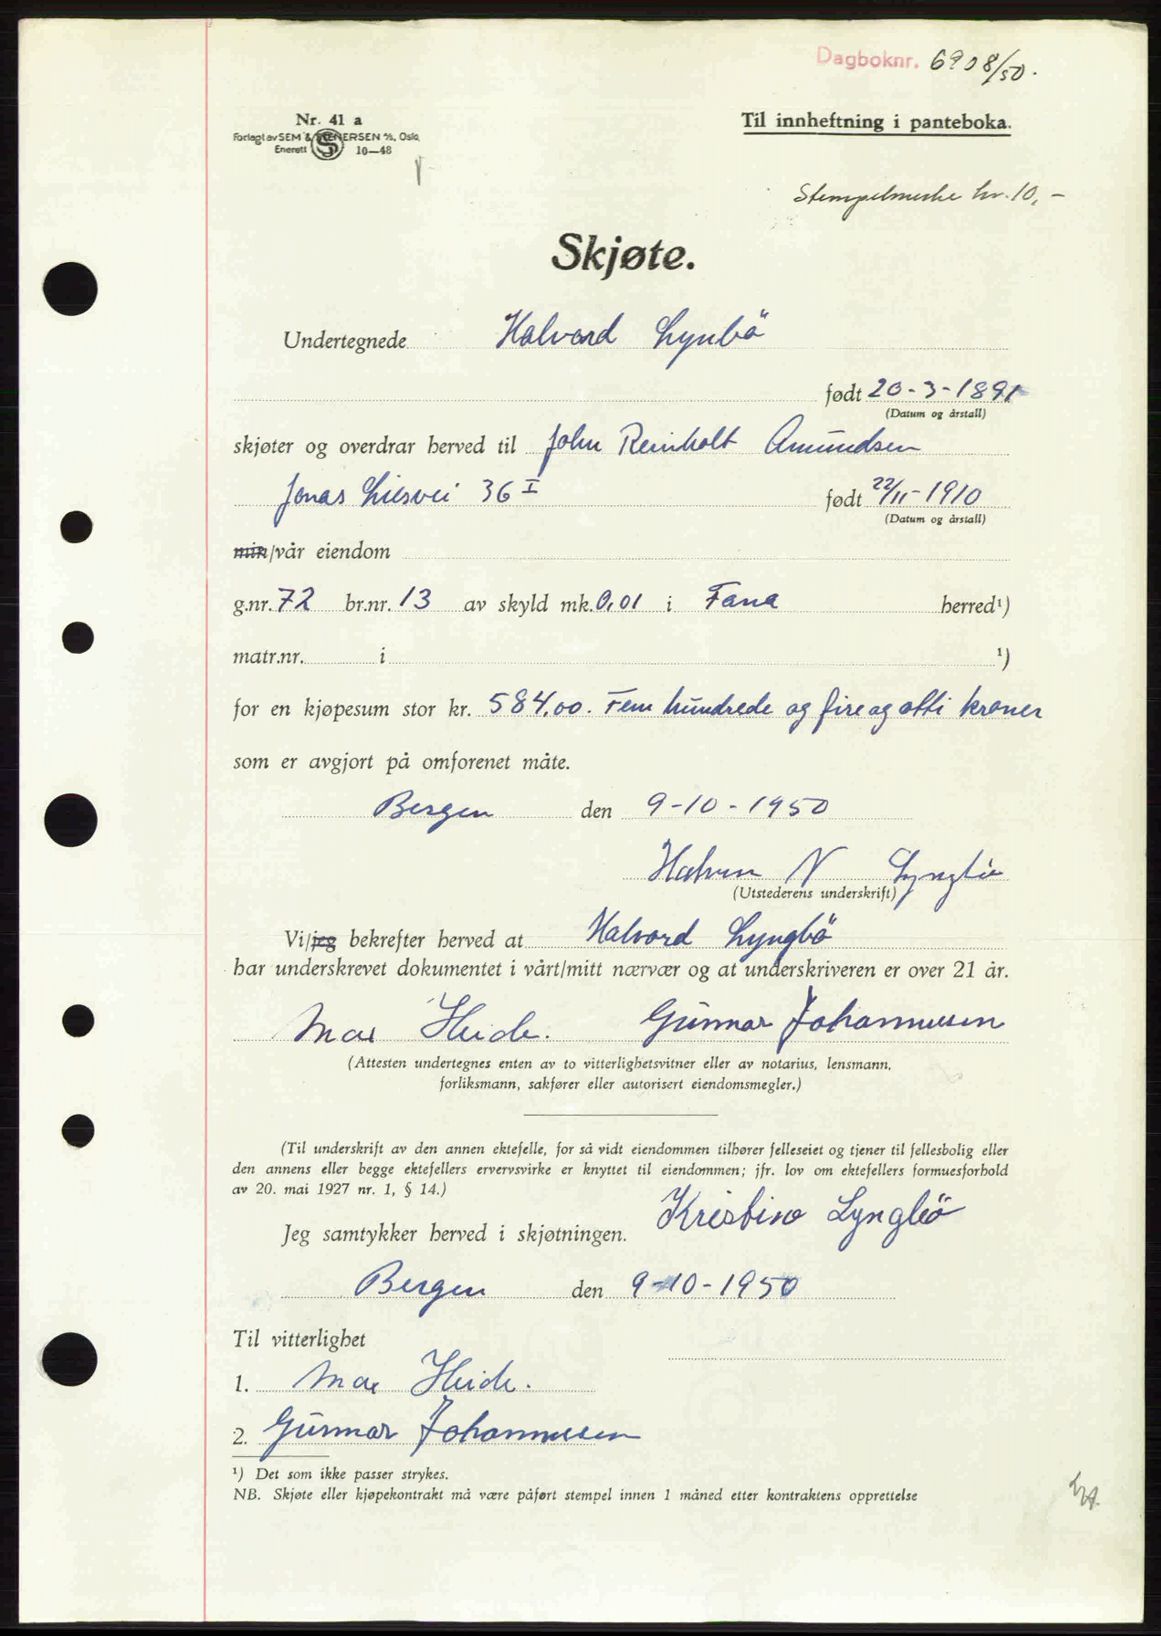 Dagboknr. 6908/50.
Nr. 41 a
Forlagt av SEM & STENERSEN A/S, Oslo
Enerett S 10—48
Til innheftning i panteboka.
Stempelmerke kr. 10,-
Skjøte.
Undertegnede Halvard Lynbö
født 20-3-1891
(Datum og årstall)
skjøter og overdrar herved til John Reinholt Amundsen
Jonas Liesvei 36 I født 22/11-1910
(Datum og årstall)
min/vår eiendom
g.nr. 72 br.nr. 13 av skyld mk. 0,01 i Fana herred¹)
matr.nr. i ¹)
for en kjøpesum stor kr. 584,00. Fem hundrede og fire og otti kroner
som er avgjort på omforenet måte.
Bergen den 9-10-1950
N Lyngbö
(Utstederens underskrift)
Vi/jeg bekrefter herved at Halvard Lyngbö
har underskrevet dokumentet i vårt/mitt nærvær og at underskriveren er over 21 år.
Max Heide. Gunnar Johannessen
(Attesten undertegnes enten av to vitterlighetsvitner eller av notarius, lensmann,
forliksmann, sakfører eller autorisert eiendomsmegler.)
(Til underskrift av den annen ektefelle, for så vidt eiendommen tilhører felleseiet og tjener til fellesbolig eller
den annens eller begge ektefellers ervervsvirke er knyttet til eiendommen; jfr. lov om ektefellers formuesforhold
av 20. mai 1927 nr. 1, § 14.)
Jeg samtykker herved i skjøtningen. Kristine Lyngbö
Bergen den 9-10-1950
Til vitterlighet
1. Max Heide.
2. Gunnar Johannessen
¹) Det som ikke passer strykes.
NB. Skjøte eller kjøpekontrakt må være påført stempel innen 1 måned etter kontraktens opprettelse